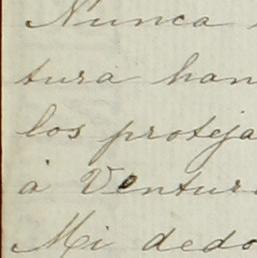 Nunca
tura han
los proteja
à Ventura
Mi dedo